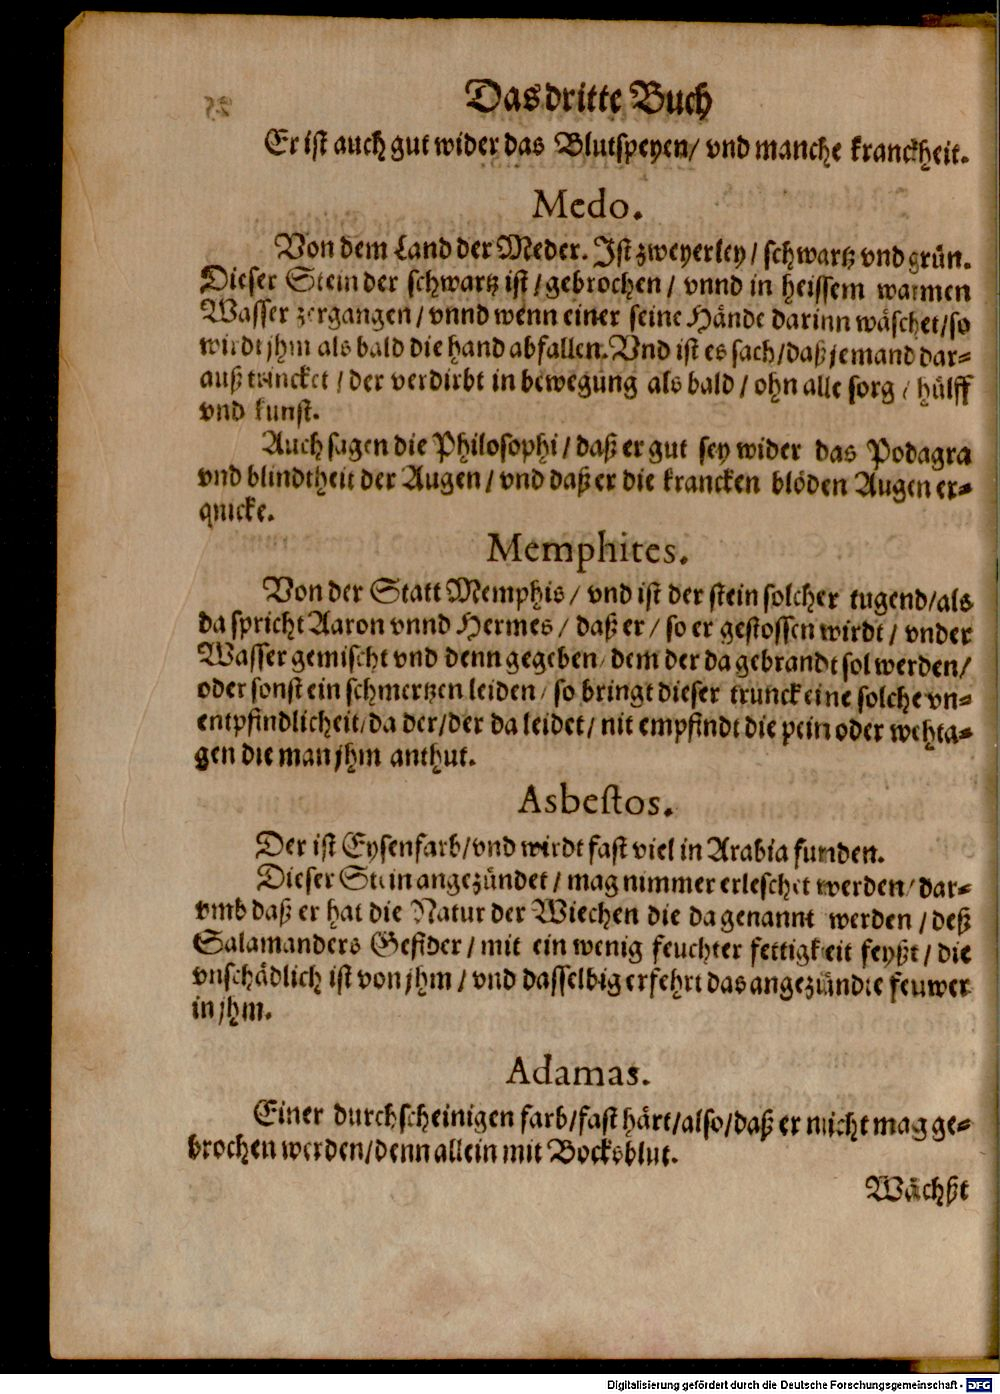 Das dritte Buch
Er ist auch gut wider das Blutspeyen/ vnd manche kranckheit.
Medo.
Von dem Land der Meder. Ist zweyerley / schwartz vnd grün.
Dieser Stein der schwartz ist / gebrochen / vnnd in heissem warmen
Wasser zergangen / vnnd wenn einer seine Hände darinn wäschet/so
wirdt jhm als bald die hand abfallen. Vnd ist es sach/daß jemand dar-
auß trincket / der verdirbt in bewegung als bald / ohn alle sorg / hülff
vnd kunst.
Auch sagen die Philosophi / daß er gut sey wider das Podagra
vnd blindtheit der Augen / vnd daß er die krancken blöden Augen er-
quicke.
Memphites.
Von der Statt Memphis / vnd ist der stein solcher tugend/als
da spricht Aaron vnnd Hermes / daß er / so er gestossen wirdt / vnder
Wasser gemischt vnd denn gegeben/ dem der da gebrandt sol werden/
oder sonst ein schmertzen leiden / so bringt dieser trunck eine solche vn-
entpfindlicheit/da der/der da leidet/ nit empfindt die pein oder wehta-
gen die man jhm anthut.
Asbestos.
Der ist Eysenfarb/vnd wirdt fast viel in Arabia funden.
Dieser Stein angezündet / mag nimmer erleschet werden/ dar-
vmb daß er hat die Natur der Wiechen die da genannt werden / deß
Salamanders Gefider / mit ein wenig feuchter fettigkeit feyßt / die
vnschädlich ist von jhm / vnd dasselbig erfehrt das angezündte feuwer
in jhm.
Adamas.
Einer durchscheinigen farb/fast härt/also/daß er nicht mag ge-
brochen werden/denn allein mit Bocksblut.
Wächßt
Digitalisierung gefördert durch die Deutsche Forschungsgemeinschaft - DFG